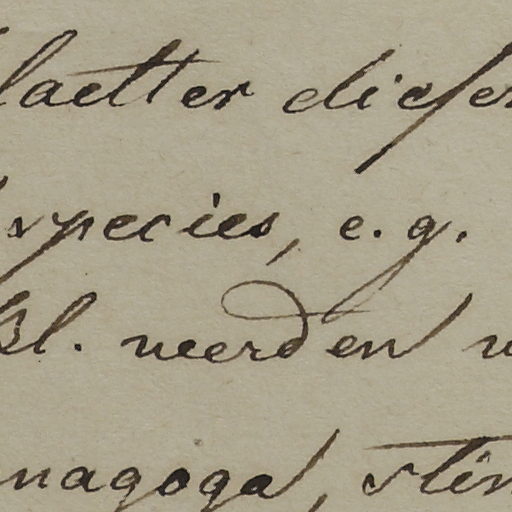 laetter dieser
species, e.g.
Bl. werden
nagoga, stin